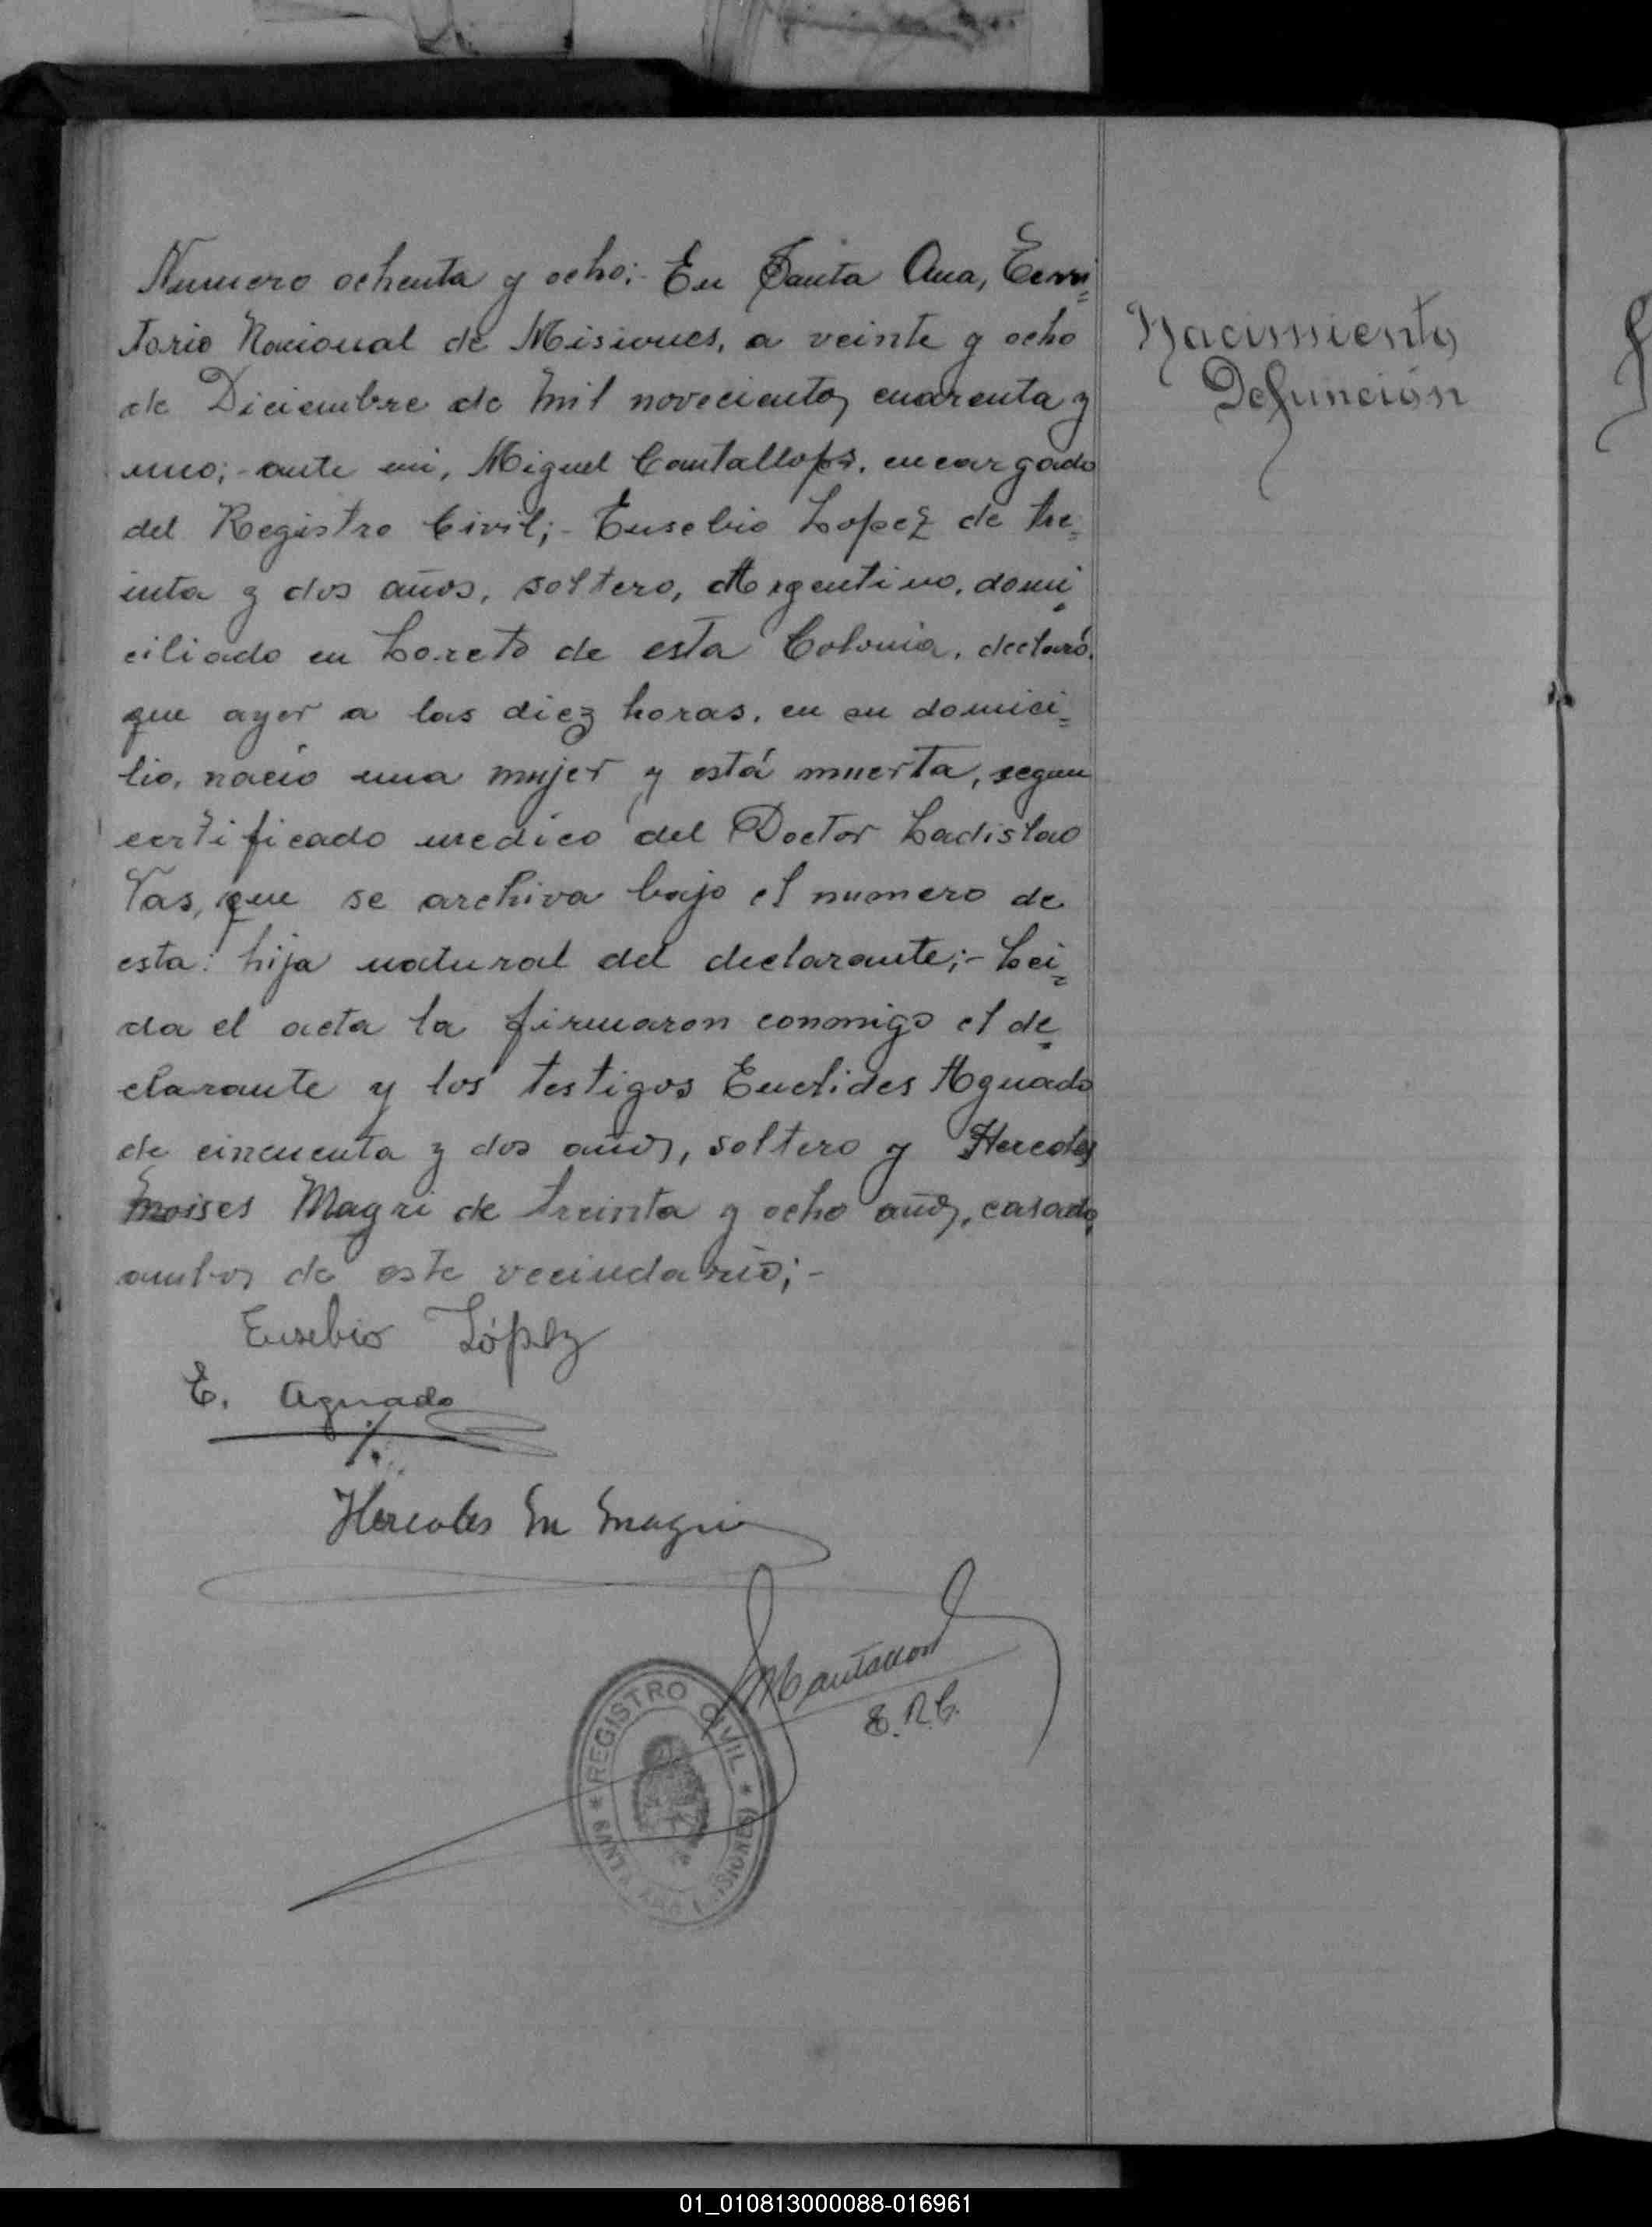 Numero ochenta y ocho;- En Santa Ana, Terri=
torio Nacional de Misiones, a veinte y ocho
de Diciembre de mil novecientos cuarenta y
uno;- ante mi, Miguel Cantallops, encargado
del Registro Civil;- Eusebio Lopez de tre=
inta y dos años, soltero, Argentino, domi=
ciliado en Loreto de esta Colonia, declaró,
que ayer a las diez horas, en su domici=
lio, nacio una mujer y está muerta, segun
certificado medico del Doctor Ladislao
Vas, que se archiva bajo el numero de
esta: hija natural del declarante;- Lei=
da el acta la firmaron conmigo el de=
clarante y los testigos Euclides Aguado
de cincuenta y dos años, soltero y Hercoles
Moises Magri de treinta y ocho años, casado,
ambos de este vecindario;-
Nacimiento
Defunción
Eusebio López
E. Aguado
Hercoles M Magri
MCantallops
E.R.C.
* REGISTRO CIVIL *
01_010813000088-016961